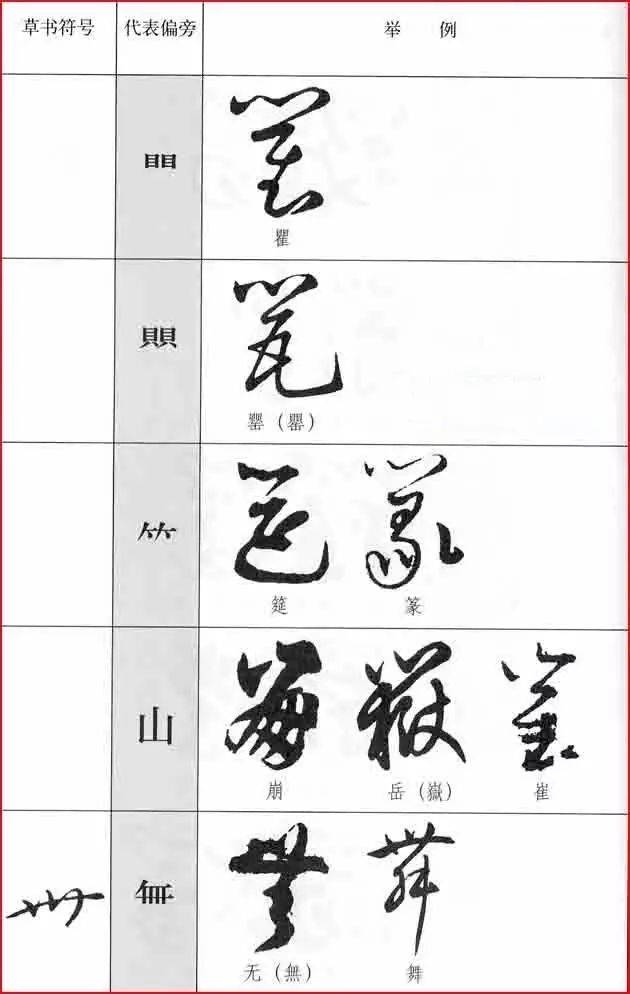 草书符号 代表偏旁 举 例
瞿
罌（罂）
𥫗
筵 篆
山
崩 岳（嶽） 崔
無 舞
无（無） 舞